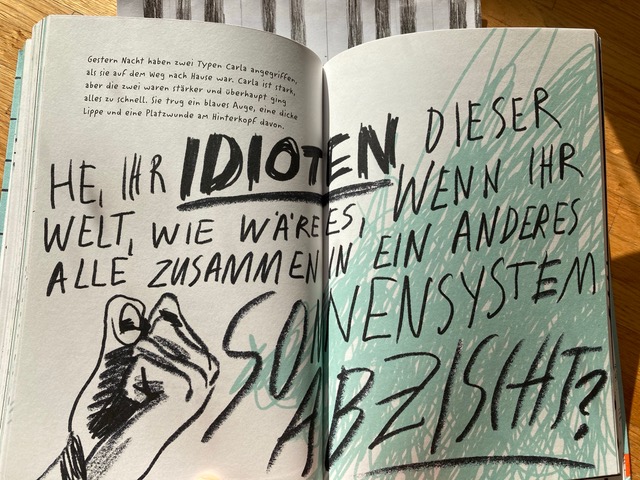 Gestern Nacht haben zwei Typen Carla angegriffen,
als sie auf dem Weg nach Hause war. Carla ist stark,
aber die zwei waren stärker und überhaupt ging
alles zu schnell. Sie trug ein blaues Auge, eine dicke
Lippe und eine Platzwunde am Hinterkopf davon.
HE, IHR IDIOTEN DIESER
WELT, WIE WÄRE ES, WENN IHR
ALLE ZUSAMMEN IN EIN ANDERES
SONNENSYSTEM
ABZISCHT?